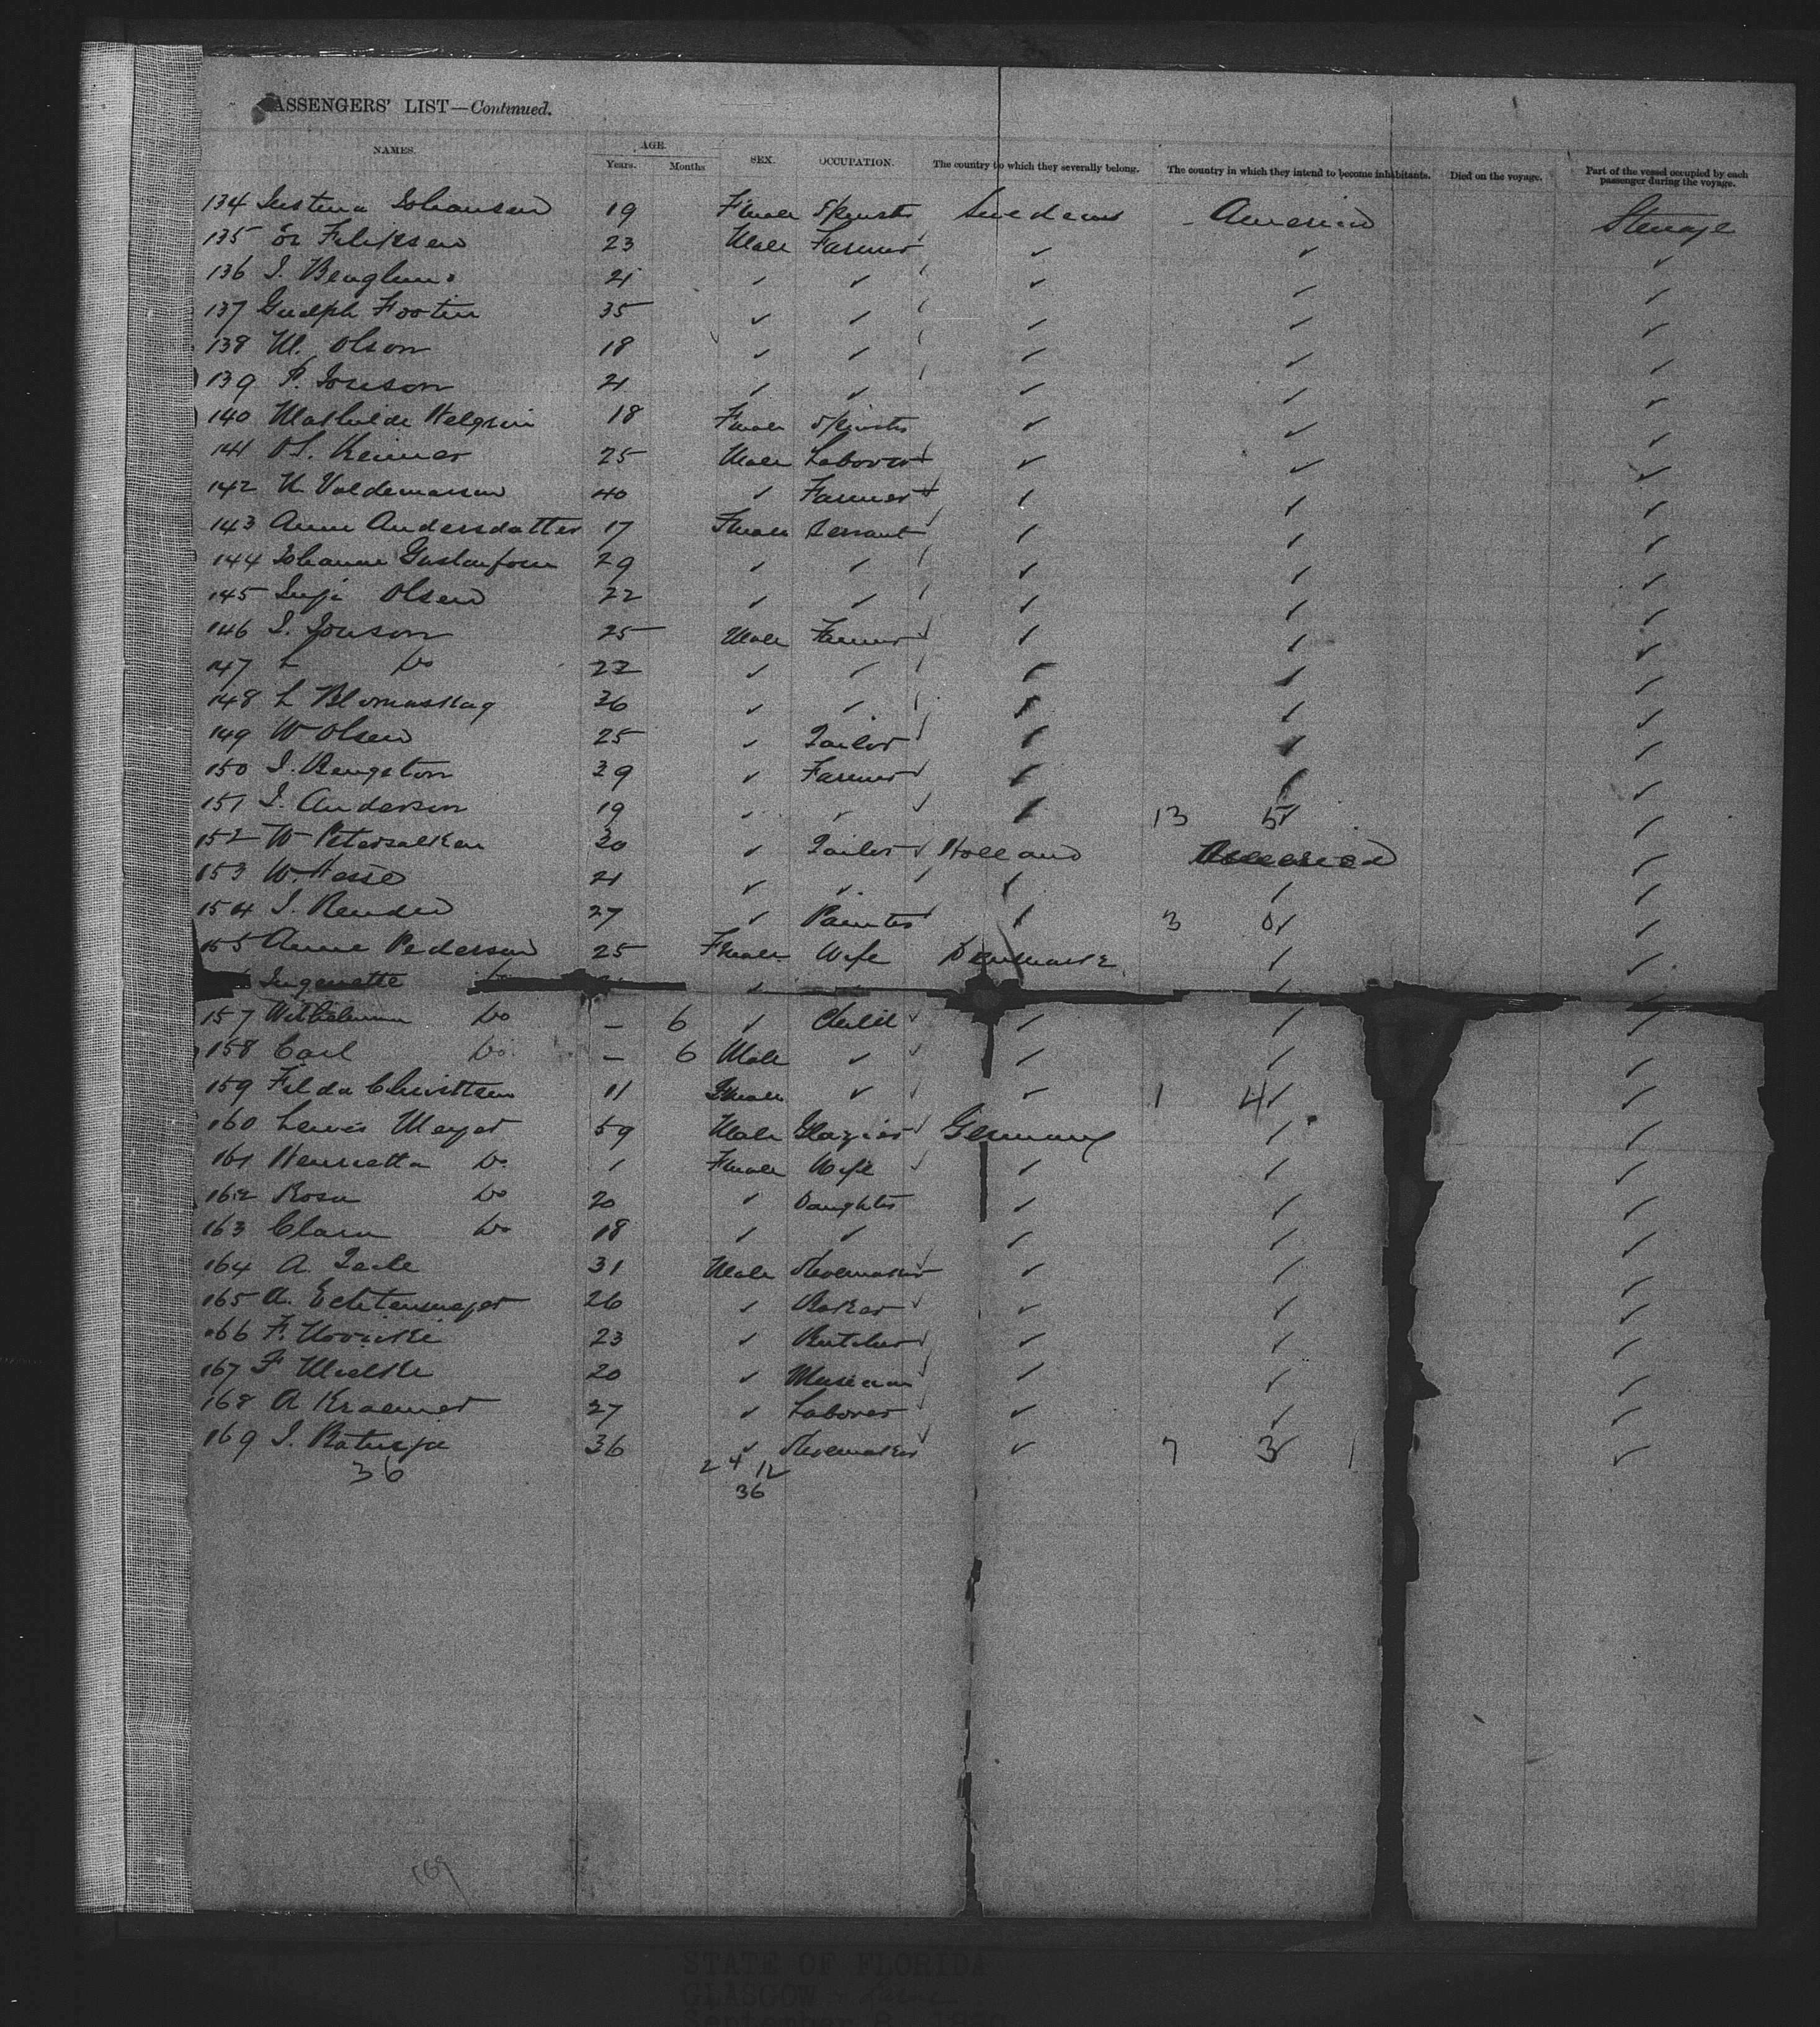 PASSENGERS' LIST—Continued.
NAMES. AGE. Years. Months SEX. OCCUPATION. The country to which they severally belong. The country in which they intend to become inhabitants. Died on the voyage. Part of the vessel occupied by each passenger during the voyage.
134 Justina Johansen 19 Female Spinster Sweden America Steerage
135 Er Feliksen 23 Male Farmer ✓ ✓ ✓
136 J. 21 ✓ ✓ ✓ ✓ ✓
137 35 ✓ ✓ ✓ ✓ ✓
138 M. Olson 18 ✓ ✓ ✓ ✓ ✓
139 P. Jonson 21 ✓ ✓ ✓ ✓ ✓
140 Mathilde Helgrin 18 Female Spinster ✓ ✓ ✓
141 25 Male Laborer ✓ ✓ ✓
142 N Valdemarsen 40 ✓ Farmer ✓ ✓ ✓
143 Anne Andersdatter 17 Female Servant ✓ ✓ ✓
144 Johanne 29 ✓ ✓ ✓ ✓ ✓
145 Olsen 22 ✓ ✓ ✓ ✓ ✓
146 J. Jonson 25 Male Farmer ✓ ✓ ✓
147 L Do 22 ✓ ✓ ✓ ✓ ✓
148 L Blomaskag 36 ✓ ✓ ✓ ✓ ✓
149 W Olsen 25 ✓ Tailor ✓ ✓ ✓
150 J. Bengston 39 ✓ Farmer ✓ ✓ ✓
151 J. Anderson 19 ✓ ✓ ✓ 13 5 ✓ ✓
152 W Petersilken 30 ✓ Tailor Holland America ✓
153 W. Hesse 21 ✓ ✓ ✓ ✓ ✓
154 J. Render 27 ✓ Painter ✓ 3 0 ✓ ✓
155 Anne Pedersen 25 Female Wife Denmark ✓ ✓
Ingenette ✓
157 Wilhelmina Do – 6 ✓ Child ✓ ✓ ✓
158 Carl Do – 6 Male ✓ ✓ ✓ ✓
159 Filda Christtsen 11 Female ✓ ✓ 1 4 ✓ ✓
160 Lewis Meyer 59 Male Glazier Germany ✓ ✓
161 Henrietta Do 1 Female Wife ✓ ✓ ✓
162 Rosa Do 20 ✓ Daughter ✓ ✓ ✓
163 Clara Do 18 ✓ ✓ ✓ ✓ ✓
164 A. 31 Male Shoemaker ✓ ✓ ✓
165 A. Echtenmeyer 26 ✓ Baker ✓ ✓ ✓
166 F. Novicki 23 ✓ Butcher ✓ ✓ ✓
167 F Mielke 20 ✓ Musician ✓ ✓ ✓
168 A Kraemer 27 ✓ Laborer ✓ ✓ ✓
169 J. 36 ✓ Shoemaker ✓ 7 3 ✓ 1 ✓
36 24 12
36
169
STATE OF FLORIDA
GLASGOW
September 8,